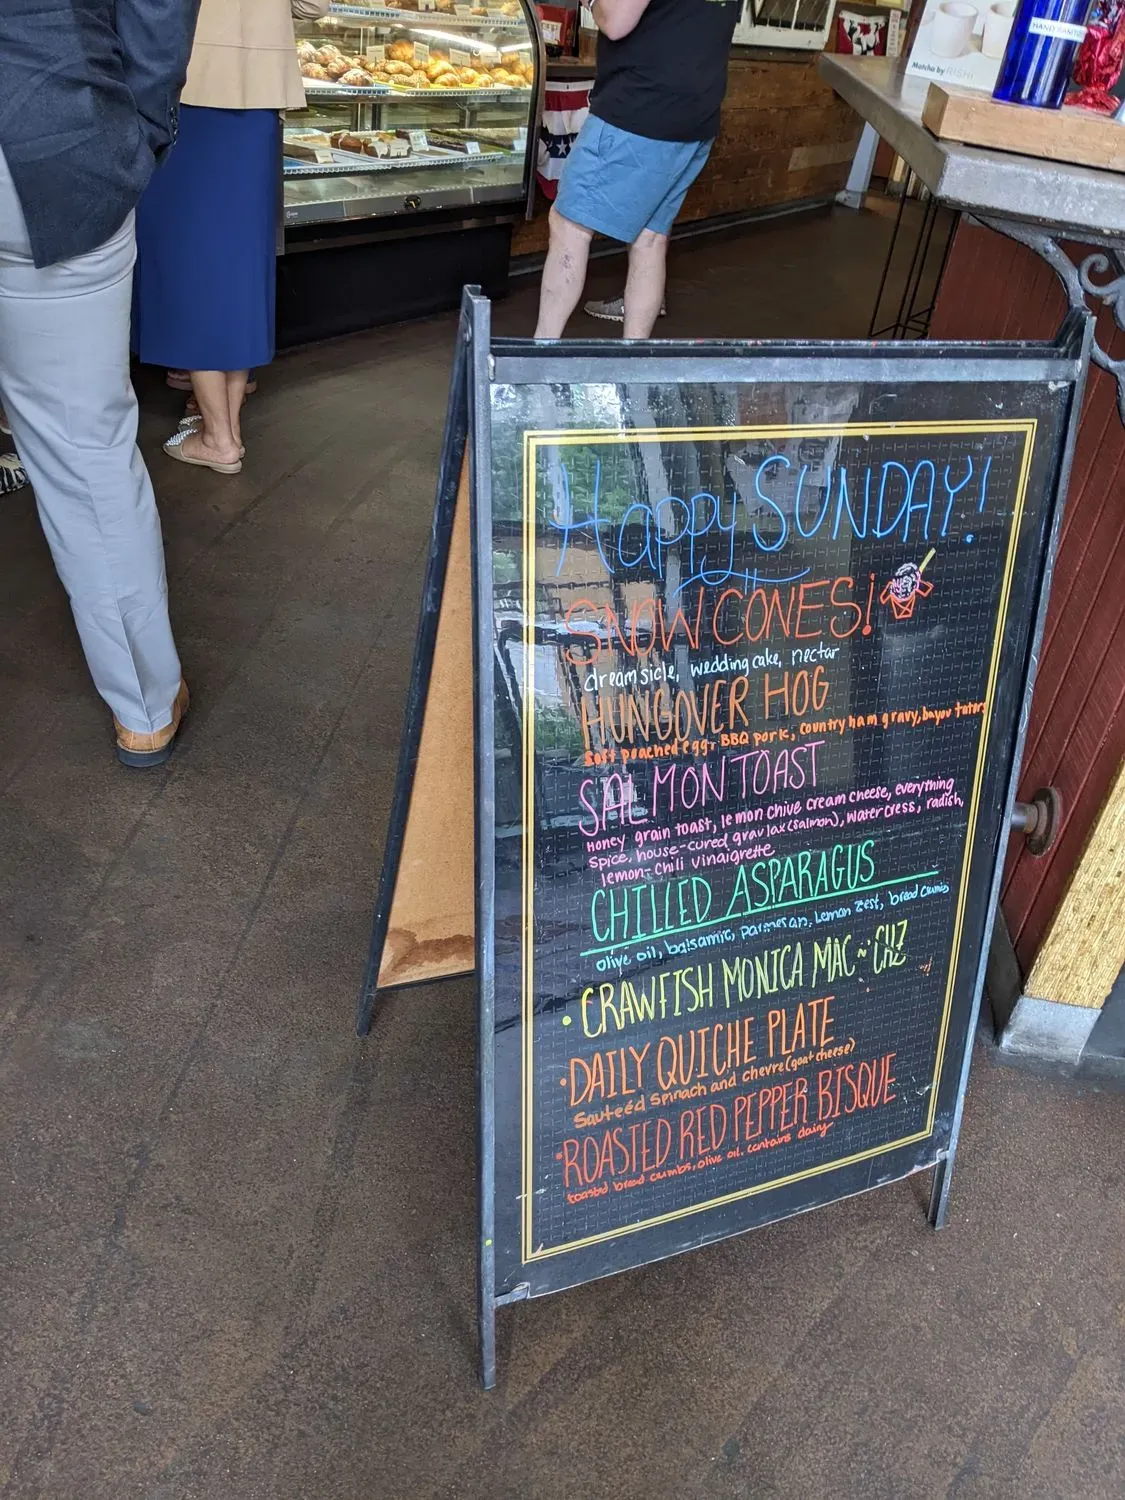 Matcha by RISHI
HAND SANITIZER
Happy SUNDAY!
SNOWCONES!
dreamsicle, wedding cake, nectar
HUNGOVER HOG
soft poached eggs BBQ pork, country ham gravy, bayou taters
SALMON TOAST
Honey grain toast, lemon chive cream cheese, everything
spice, house-cured gravlax (salmon), watercress, radish,
lemon-chili vinaigrette
CHILLED ASPARAGUS
olive oil, balsamic, parmesan, lemon zest, bread crumbs
• CRAWFISH MONICA MAC ~ CHZ
• DAILY QUICHE PLATE
Sauteéd spinach and chevre (goat cheese)
• ROASTED RED PEPPER BISQUE
toasted bread crumbs, olive oil, contains dairy